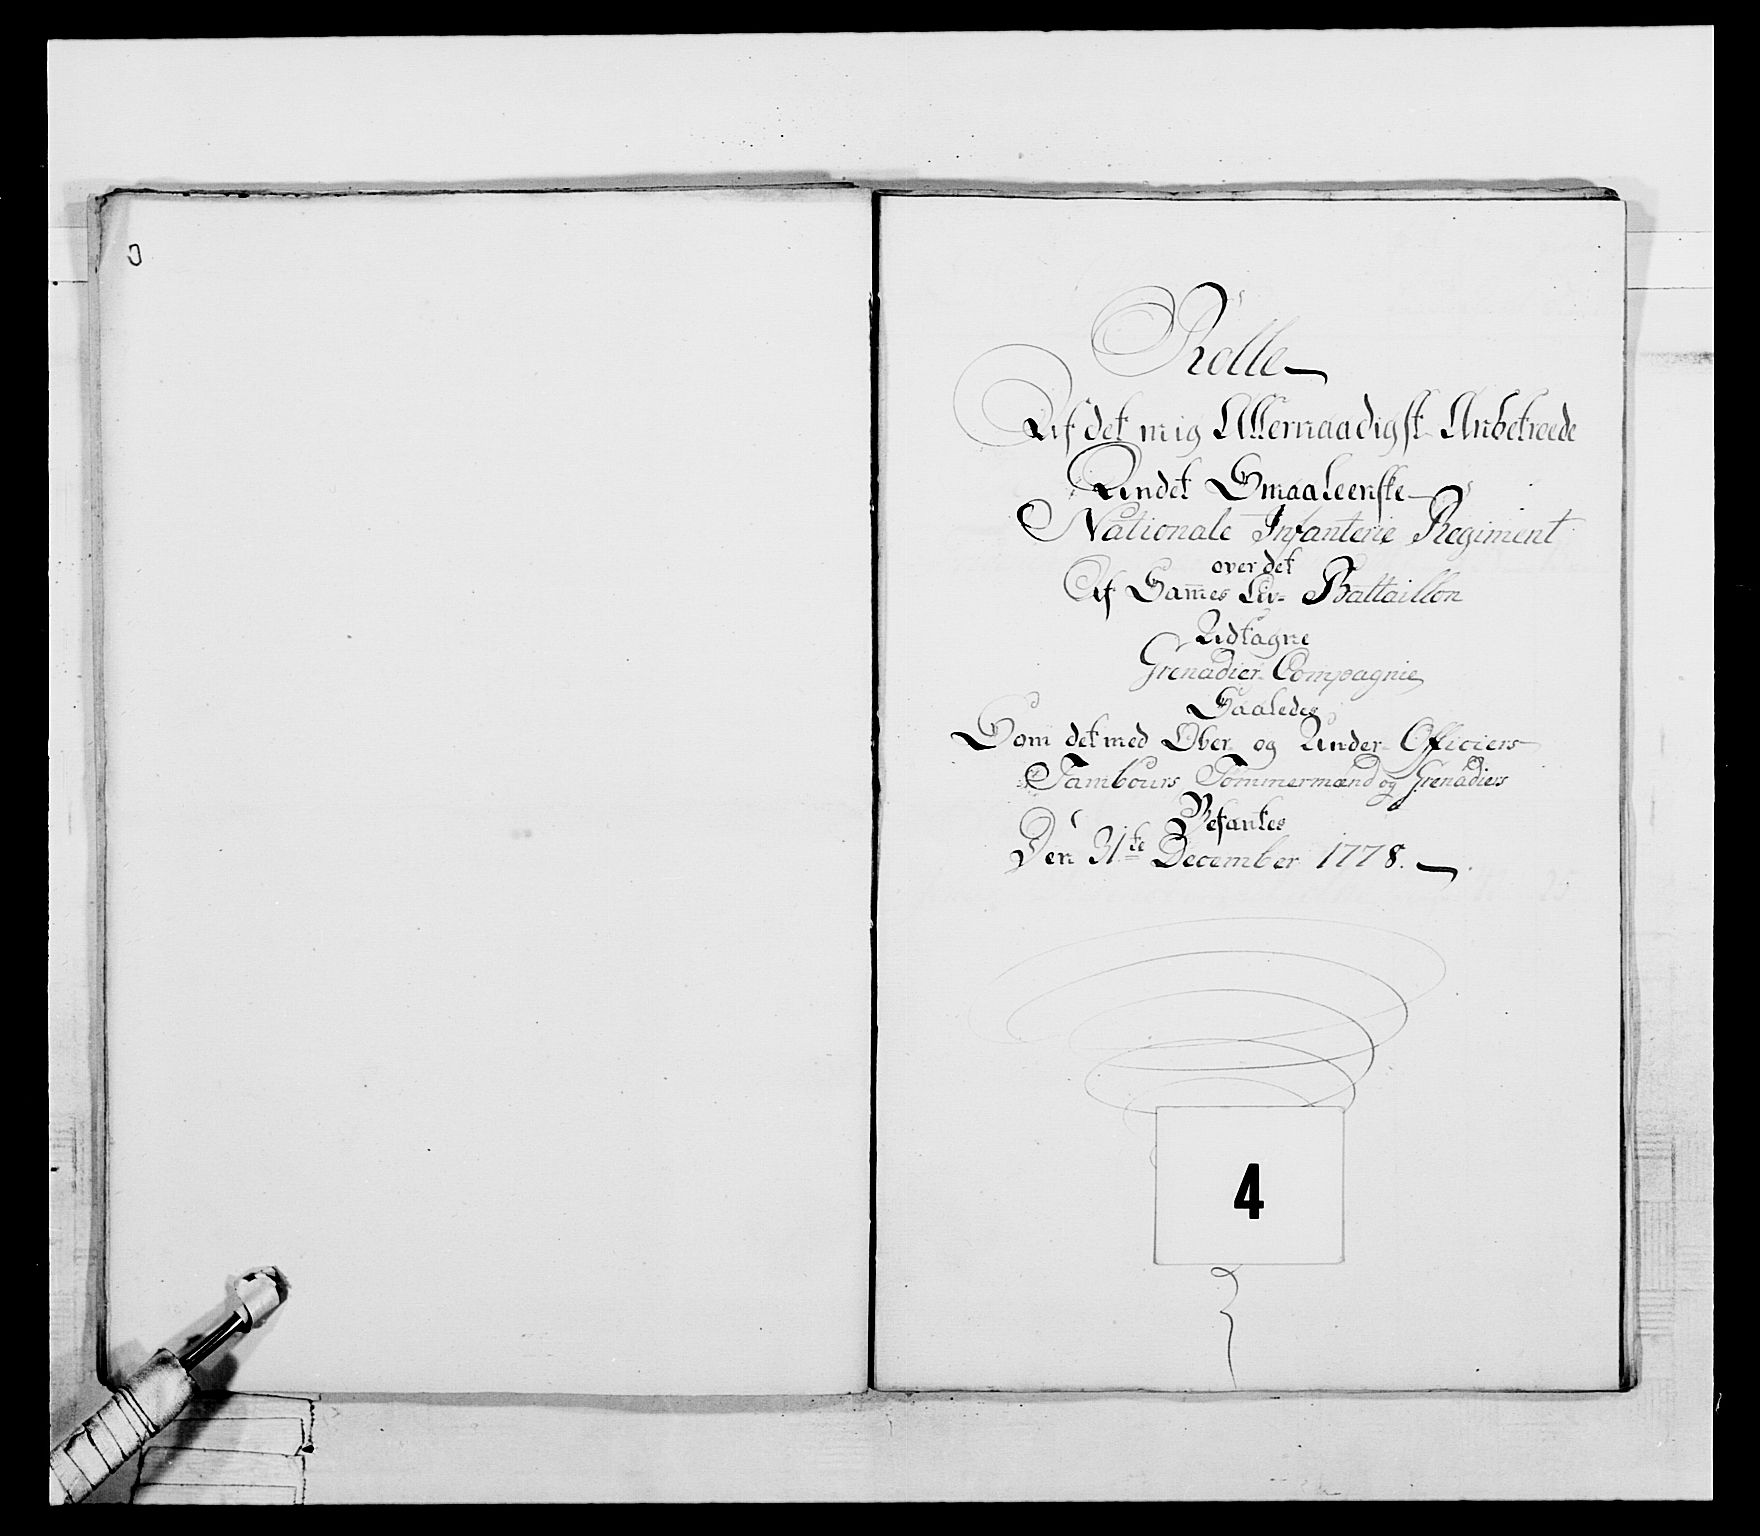 Rolle
Af det mig Allernaadigst Anbetroede
Andet Smaaleenske
Nationale Infanterie Regiment
over det
Af Sam̄es Liv- Battaillon
Udtagne
Grenadier Compagnie
Saaledes
Som det med Ober og Under Officiers
Tambours Tømmermænd og Grenadiers
Befantes
Den 31te December 1778.
4